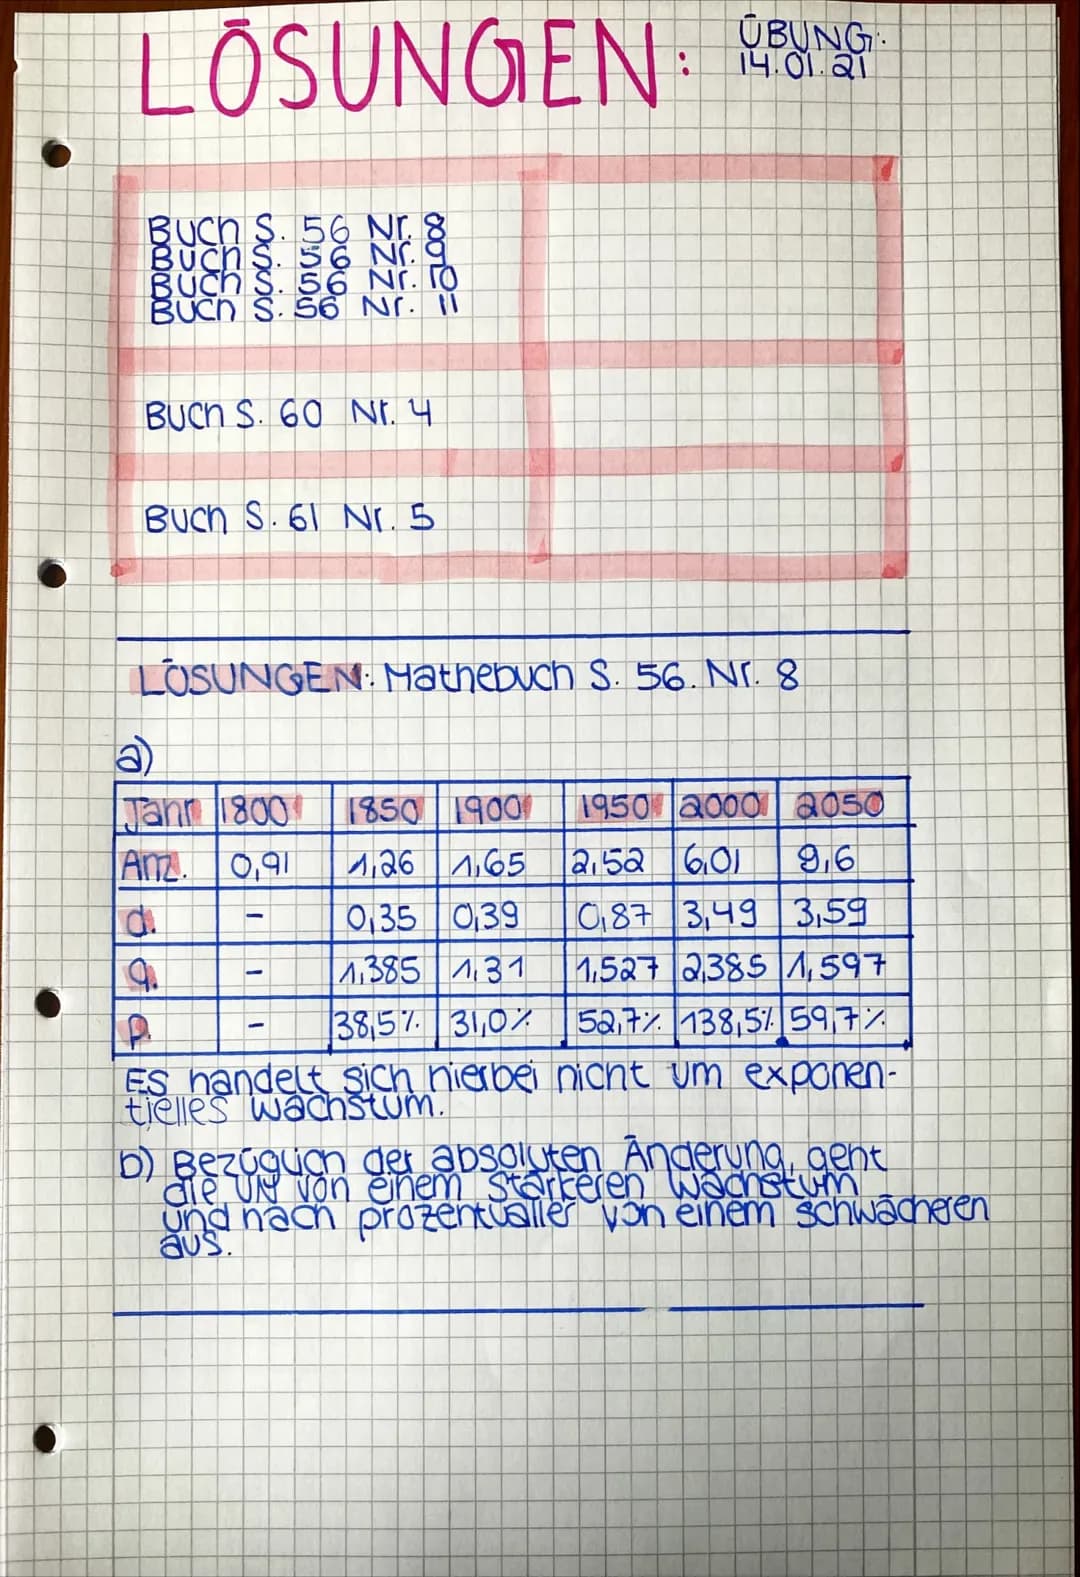 LÖSUNGEN:
ÜBUNG:
14.01.21
Buch S. 56 Nr. 8
Buch S. 56 Nr. 9
Buch S. 56 Nr. 10
Buch S. 56 Nr. 11
Buch S. 60 Nr. 4
Buch S. 61 Nr. 5
LÖSUNGEN: Mathebuch S. 56. Nr. 8
a)
Jahr 1800 1850 1900 1950 2000 2050
Anz. 0,91 1,26 1,65 2,52 6,01 9,6
d. - 0,35 0,39 0,87 3,49 3,59
q. - 1,385 1,31 1,527 2,385 1,597
p. - 38,5% 31,0% 52,7% 138,5% 59,7%
Es handelt sich hierbei nicht um exponen-
tielles Wachstum.
b) Bezüglich der absoluten Änderung, geht
die UN von einem stärkeren Wachstum
und nach prozentualler von einem schwächeren
aus.